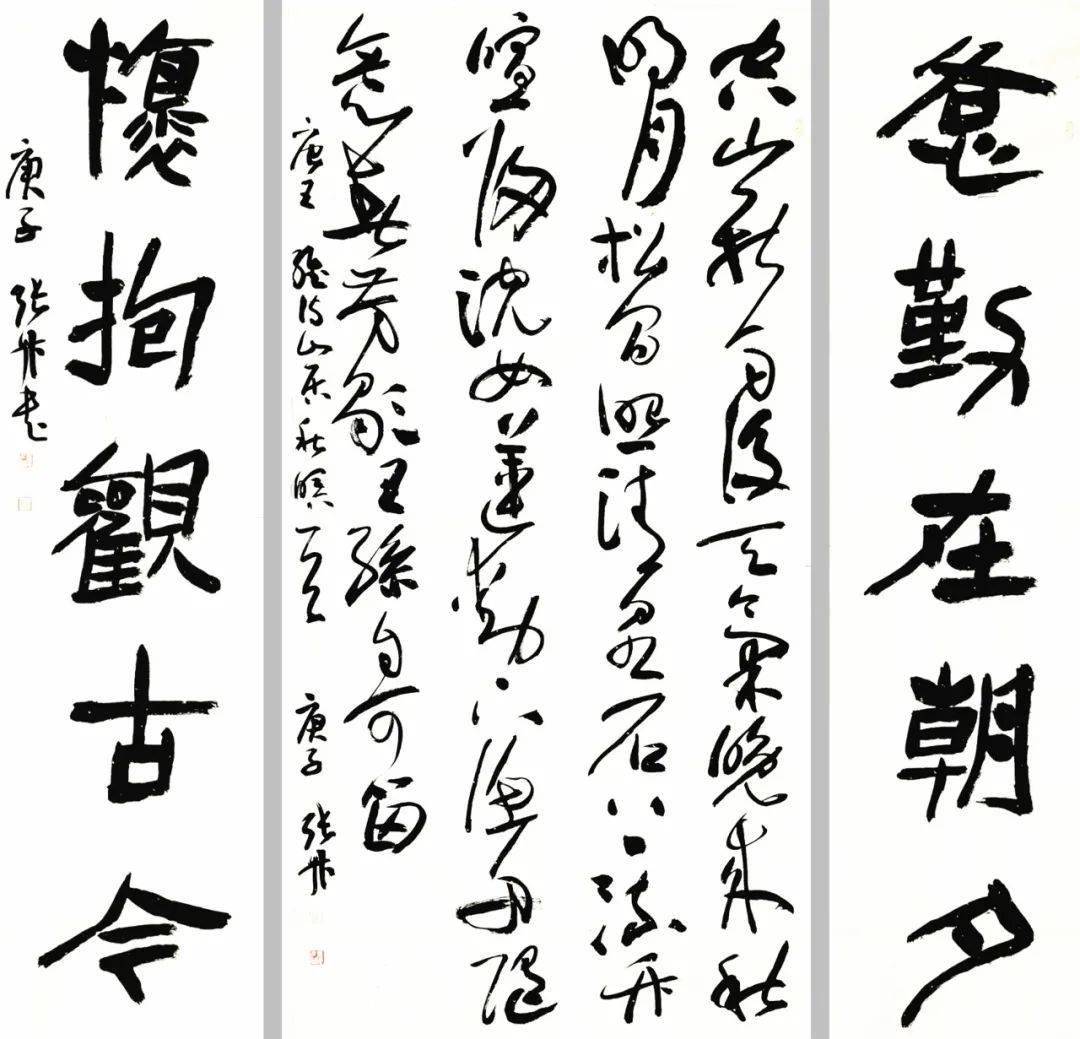 勤在朝夕
空山新雨後天氣晚來秋
明月松間照清泉石上流竹
喧歸浣女蓮動下漁舟隨
意春芳歇王孫自可留
唐王維詩山居秋暝一首 庚子 張
懷抱觀古今
庚子 張 書